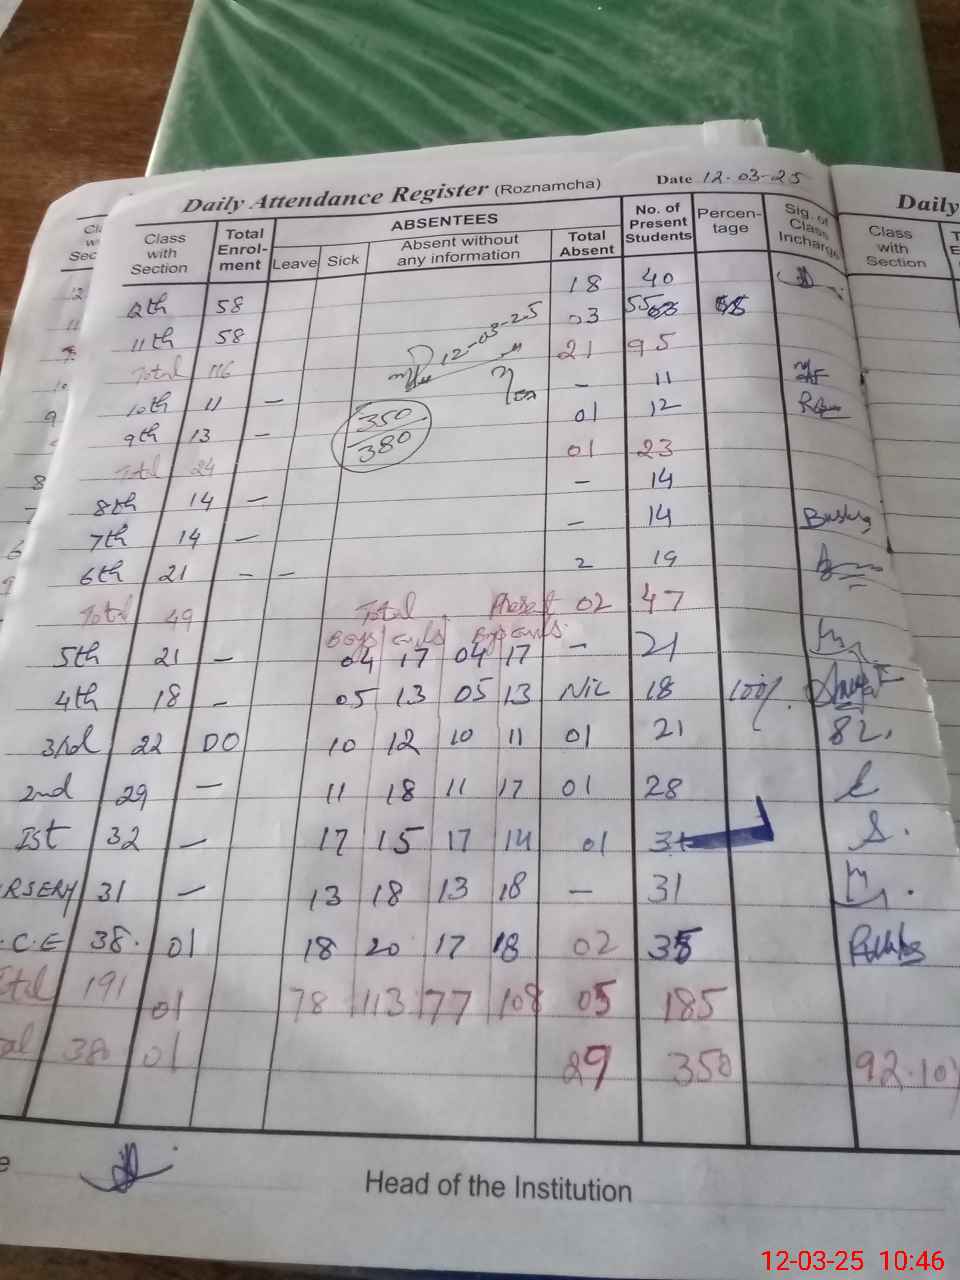 Daily Attendance Register (Roznamcha) Date 12-03-25
Daily
Class with Section
Total Enrol-ment
ABSENTEES
Leave Sick Absent without any information Total Absent
No. of Present Students
Percen-tage
Sig. of Class Incharge
Class with Section
12th 58 18 40
11th 58 03 55
12-03-25
Total 116 21 95
10th 11 — - 11
350
380
9th 13 — 01 12
Total 24 01 23
8th 14 — - 14
7th 14 — - 14
6th 21 - - 2 19
Total 49 02 47
Total Present
Boys Girls Boys Girls
5th 21 — 04 17 04 17 - 21
4th 18 - 05 13 05 13 Nil 18 100%.
3rd 22 DO 10 12 10 11 01 21
2nd 29 — 11 18 11 17 01 28
Ist 32 — 17 15 17 14 01 31
RSERY 31 — 13 18 13 18 — 31
.C.E 38. 01 18 20 17 18 02 35
Total 191 01 78 113 77 108 05 185
al 380 01 29 350 92.10%
Head of the Institution
12-03-25 10:46